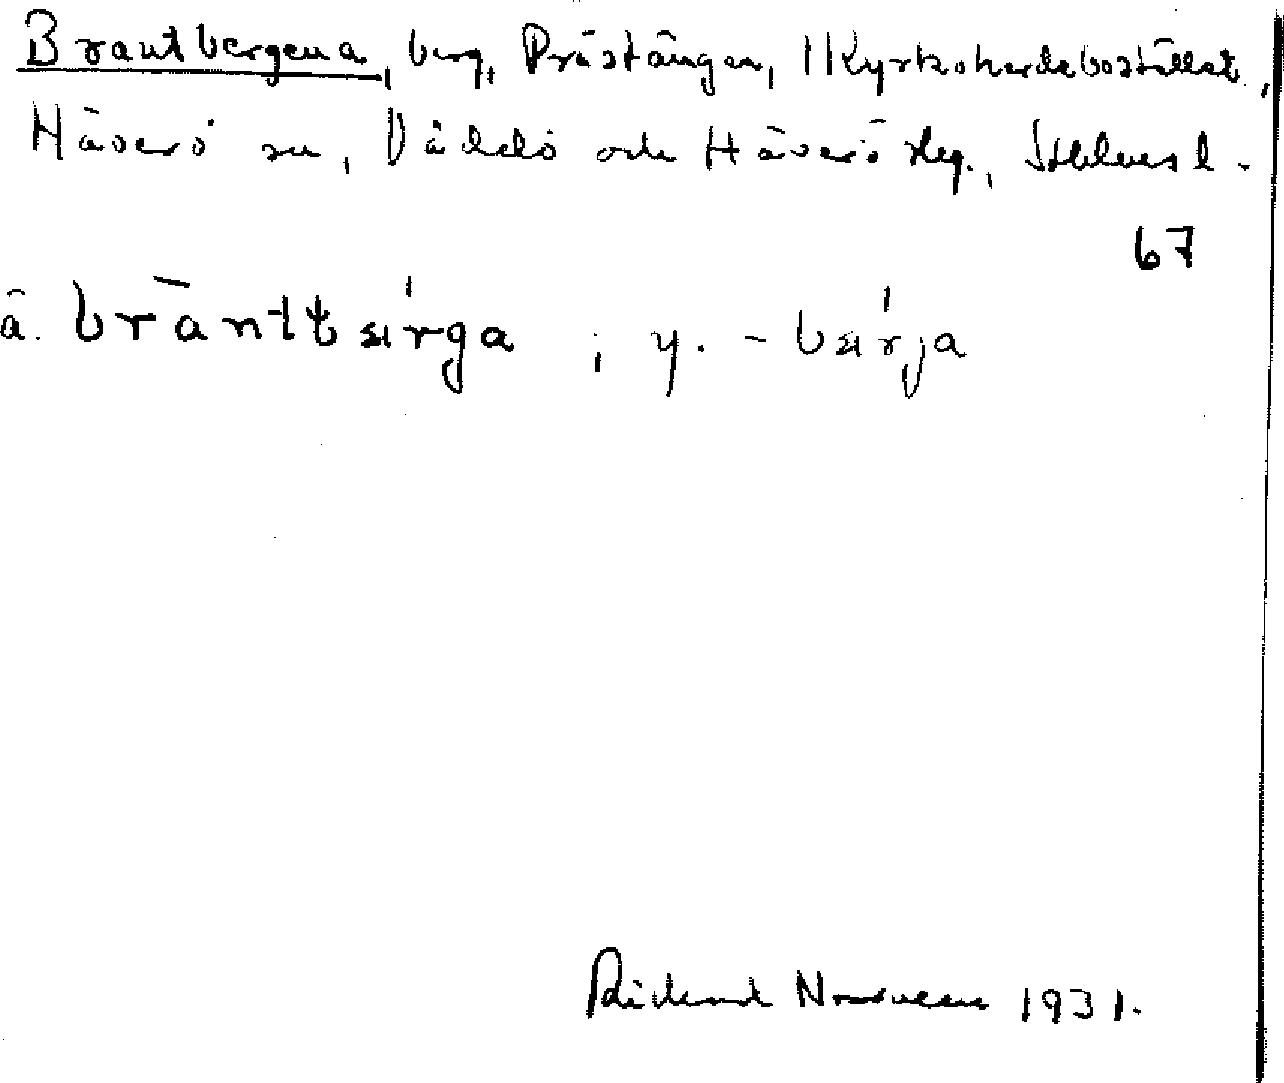 Brantbergena, berg, Prästängen, 1 Kyrkoherdebostället,
Häverö sn, Väddö och Häverö skg., Sthlms l.
67
ä. bräntbærga ; y. - bærja
Rickard Norsvenn 1931.